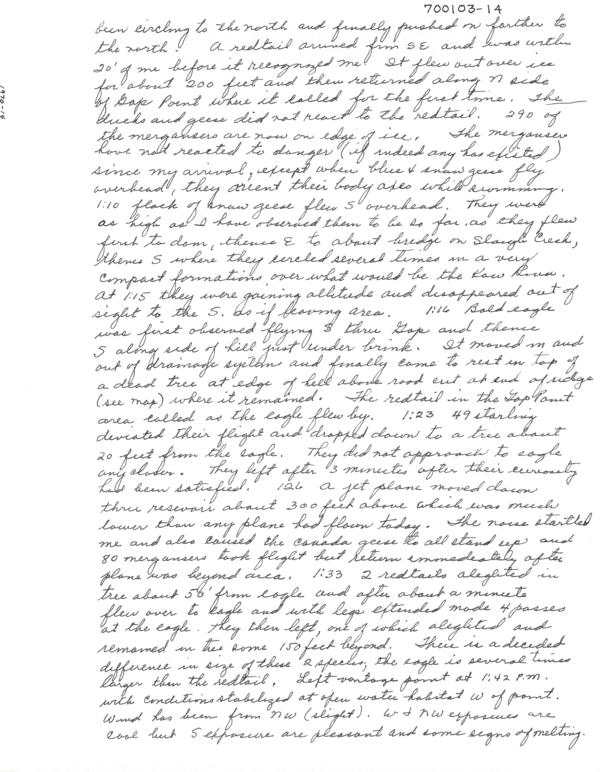 700103-14
1970-14
been circling to the north and finally pushed on farther to
the north. A redtail arrived from SE and was within
20' of me before it recognized me. It flew out over ice
for about 200 feet and then returned along N side
of Gap Point where it called for the first time. The
ducks and geese did not react to the redtail. 290 of
the mergansers are now on edge of ice. The mergansers
have not reacted to danger (if indeed any has existed)
since my arrival, except when blue & snow geese fly
overhead, they orient their body axes while swimming.
1:10 flock of snow geese flew S overhead. They were
as high as I have observed them to be so far as they flew
first to dam, thence E to about bridge on Slough Creek,
thence S where they circled several times in a very
compact formations over what would be the Kaw River.
At 1:15 they were gaining altitude and disappeared out of
sight to the S. as if leaving area. 1:16 Bald eagle
was first observed flying S thru Gap and thence
S along side of hill just under brink. It moved in and
out of drainage system and finally came to rest in top of
a dead tree at edge of hill above road cut at end of ridge
(see map) where it remained. The redtail in the Gap Point
area called as the eagle flew by. 1:23 49 starling
deviated their flight and dropped down to a tree about
20 feet from the eagle. They did not approach to eagle
any closer. They left after 3 minutes after their curiosity
had been satisfied. 126 A jet plane moved down
thru resevoir about 300 feet above which was much
lower than any plane had flown today. The noise startled
me and also caused the Canada geese to all stand up and
80 mergansers took flight but return immediately after
plane was beyond area. 1:33 2 redtails alighted in
tree about 50' from eagle and after about a minute
flew over to eagle and with legs extended made 4 passes
at the eagle. They then left, one of which alighted and
remained in tree some 150 feet beyond. There is a decided
difference in size of these 2 species, the eagle is several times
larger than the redtail. Left vantage point at 1:42 P.M.
with conditions stabilized at open water habitat W of point.
Wind has been from NW (slight). W & NW exposures are
cool but S exposure are pleasant and some signs of melting.